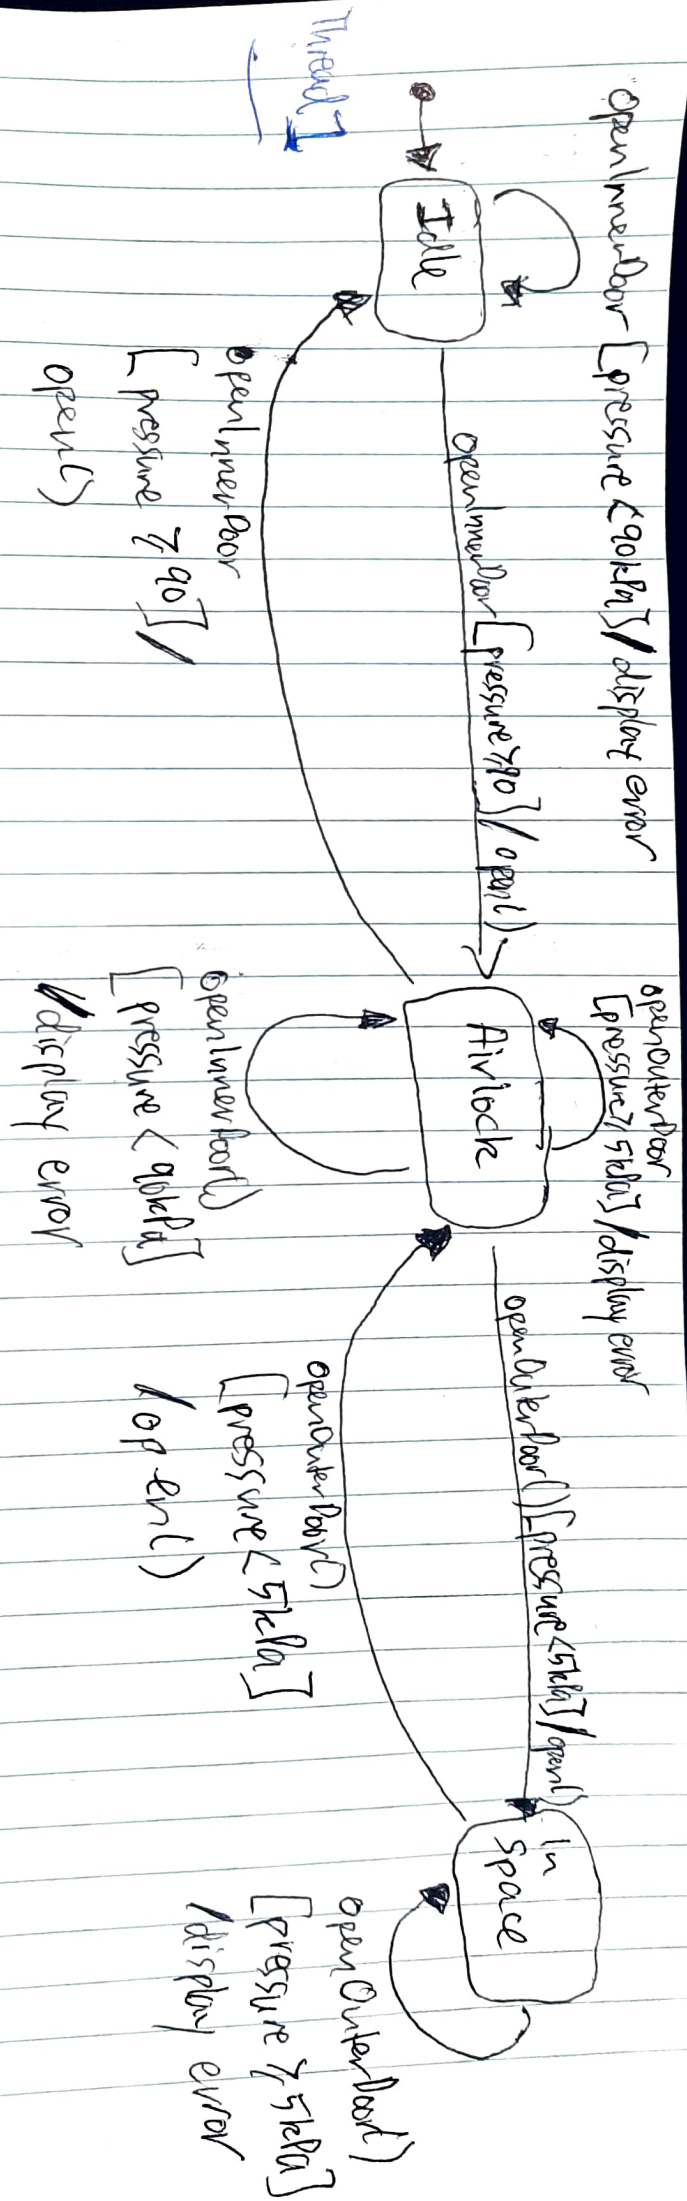 Thread 1
openInnerDoor [pressure < 90kPa] / display error
Idle
openInnerDoor [pressure ⩾ 90] / open()
openInnerDoor
[pressure ⩾ 90] /
open()
openOuterDoor
[pressure ⩾ 5kPa] / display error
Airlock
openInnerDoor()
[pressure < 90kPa]
/display error
openOuterDoor() [pressure < 5kPa] / open()
openOuterDoor()
[pressure < 5kPa]
/open()
In
Space
openOuterDoor()
[pressure ⩾ 5kPa]
/display error